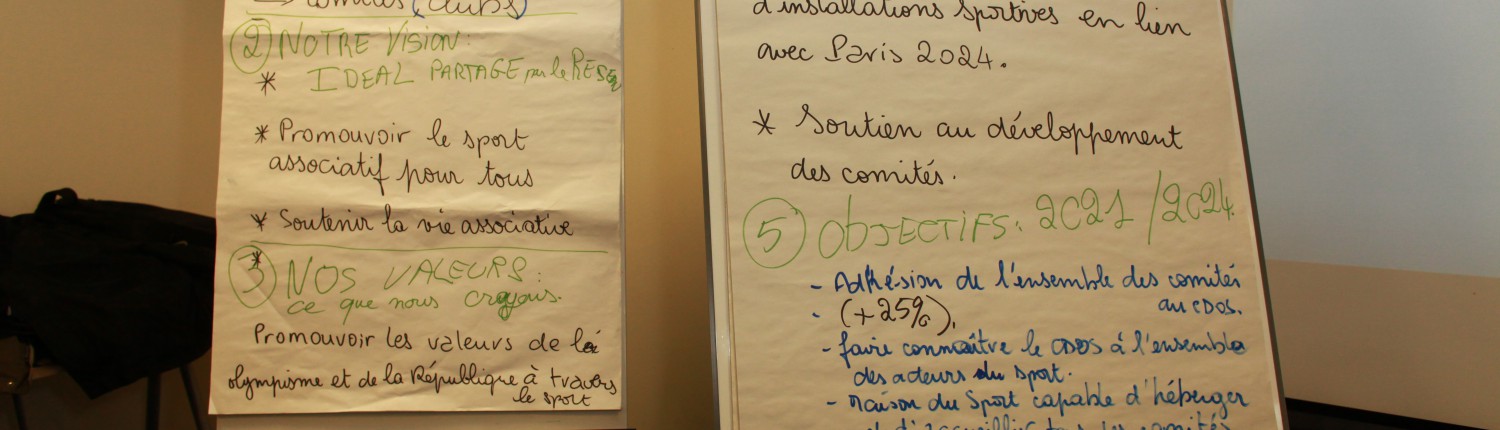 → Comités (Clubs)
② NOTRE VISION:
* IDEAL PARTAGE par le RESE
* Promouvoir le sport
associatif pour tous
* Soutenir la vie associative
③ * NOS VALEURS:
ce que nous croyons.
Promouvoir les valeurs de la
olympisme et de la République à travers
le sport
d'installations sportives en lien
avec Paris 2024.
* Soutien au développement
des comités.
⑤ ObJECTIFS: 2021/2024.
- Adhésion de l'ensemble des comités
au CDOS.
- (+25%).
- faire connaître le CDOS à l'ensemble
des acteurs du sport.
- Maison du Sport capable d'héberger
et d'accueillir tous les comités